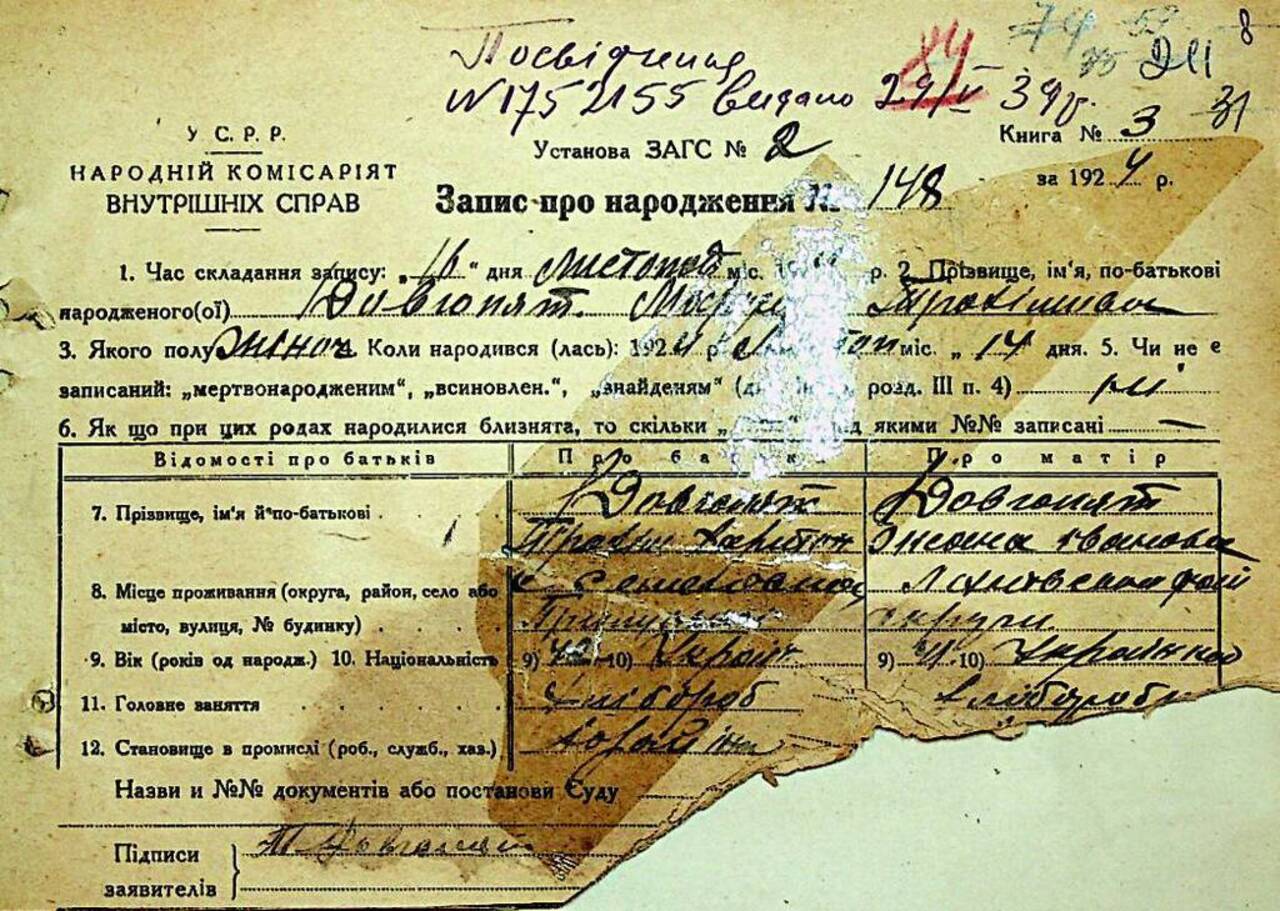 74 52 8
84
Посвідчення 75 241
№1752155 видано 29/V 39р. 31
У С. Р. Р.
Установа ЗАГС № 2
Книга № 3
НАРОДНІЙ КОМІСАРІЯТ
ВНУТРІШНІХ СПРАВ
за 1924 р.
Запис про народження № 148
1. Час складання запису: „ 16 " дня Листопад міс. 19 р. 2. Прізвище, ім'я, по-батькові
народженого(ої) Довгопят
3. Якого полу Жіноч. Коли народився (лась): 1924 р міс. „ 14 дня. 5. Чи не є
записаний: „мертвонародженим", „всиновлен.", „знайденям" розд. III п. 4) ні
6. Як що при цих родах народилися близнята, то скільки якими №№ записані —
Відомості про батьків Про батька Про матір
7. Прізвище, ім'я й по-батькові Довгопят Довгопят
Іванова
8. Місце проживання (округа, район, село або
місто, вулиця, № будинку) округи
9. Вік (років од народж.) 10. Національність 9) 10) Україн 9) 41 10) Українка
11. Головне заняття Хлібороб хлібороб
12. Становище в промислі (роб., служб., хаз.)
Назви и №№ документів або постанови Суду
Підписи Т Довгопят
заявителів